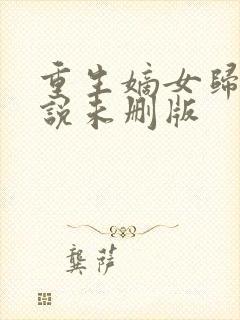 重生嫡女歸
說未刪版
龔萍